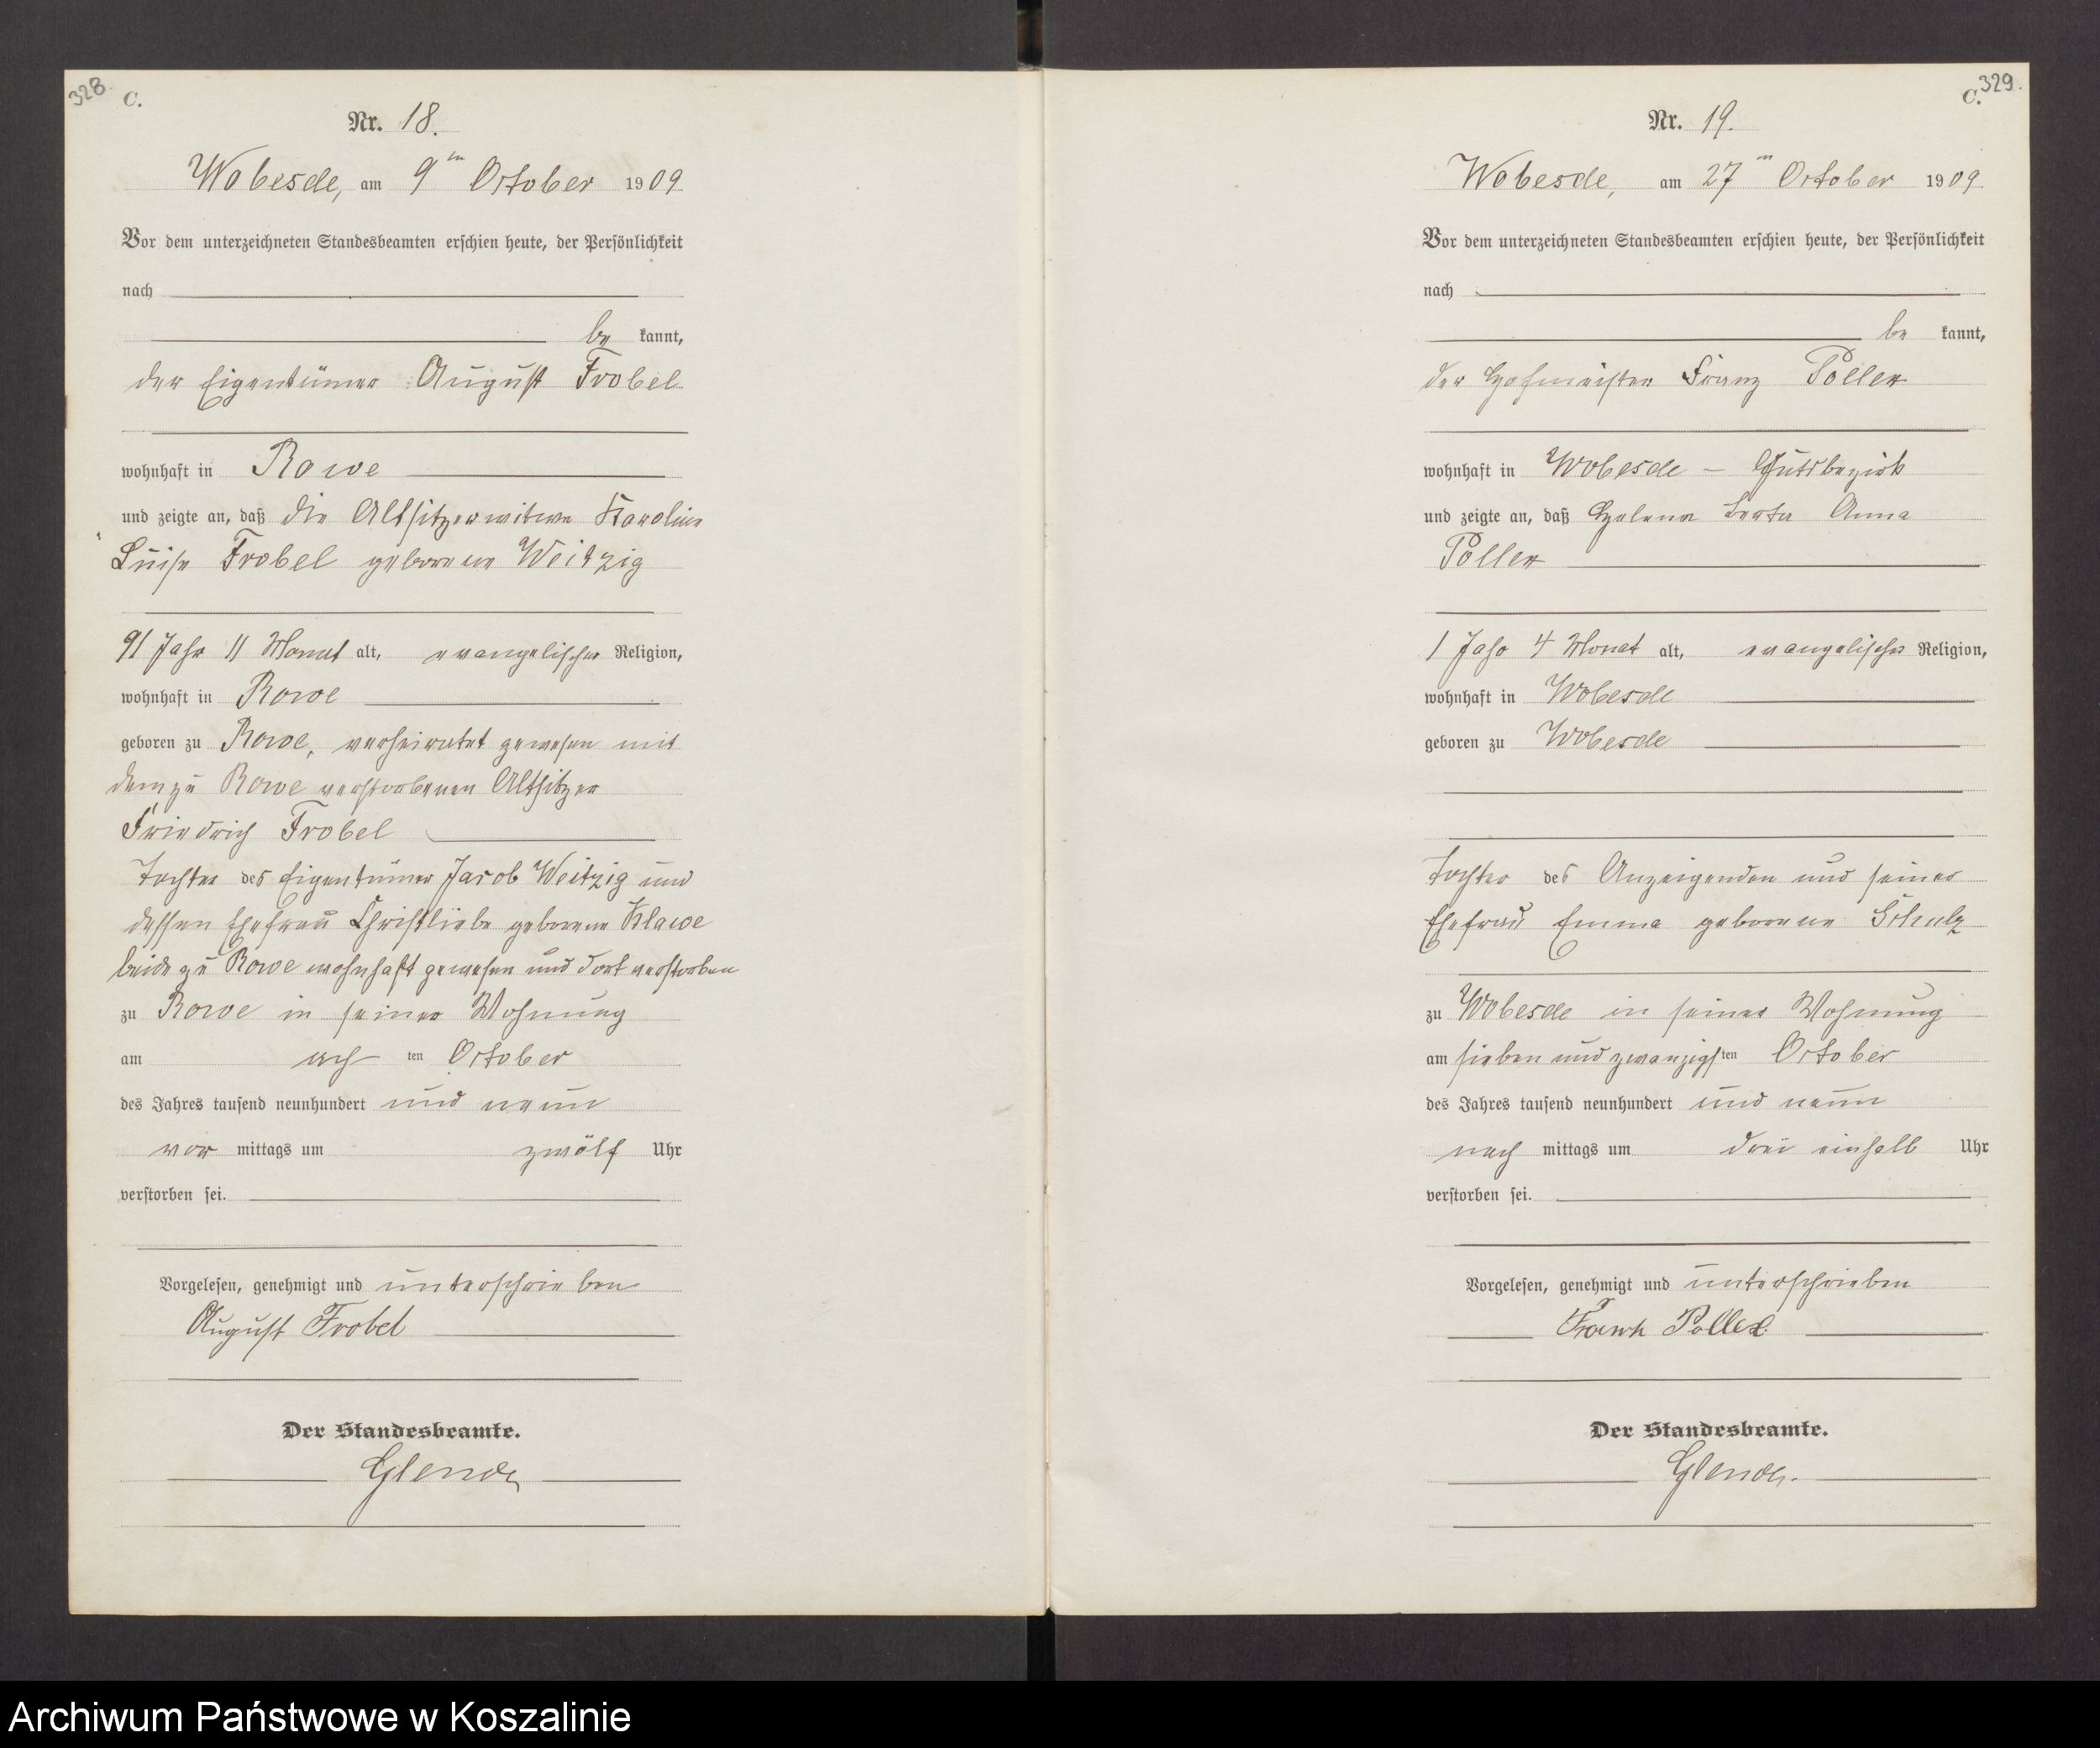 328.
C.
Nr. 18.
Wobesde, am 9ten October 1909
Vor dem unterzeichneten Standesbeamten erschien heute, der Persönlichkeit
nach
be kannt,
der Eigentümer August Frobel
wohnhaft in Rowe
und zeigte an, daß die Altsitzerwitwe Karoline
Luise Frobel geborene Weitzig
91 Jahr 11 Monat alt, evangelischer Religion,
wohnhaft in Rowe
geboren zu Rowe, verheiratet gewesen mit
dem zu Rowe verstorbenen Altsitzer
Friedrich Frobel
Tochter des Eigentümer Jacob Weitzig und
dessen Ehefrau Christliebe geborene Klawe
beide zu Rowe wohnhaft gewesen und dort verstorben
zu Rowe in seiner Wohnung
am ach ten October
des Jahres tausend neunhundert und neun
vor mittags um zwölf Uhr
verstorben sei.
Vorgelesen, genehmigt und unterschrieben
August Frobel
Der Standesbeamte.
329.
C.
Nr. 19.
Wobesde, am 27ten October 1909.
Vor dem unterzeichneten Standesbeamten erschien heute, der Persönlichkeit
nach
be kannt,
der Hofmeister Franz Poller
wohnhaft in Wobesde – Gutsbezirk
und zeigte an, daß Helena Berta Anna
Poller
1 Jahr 4 Monat alt, evangelischer Religion,
wohnhaft in Wobesde
geboren zu Wobesde
Tochter des Anzeigenden und seiner
Ehefrau Emma geborene Schulz
zu Wobesde in seiner Wohnung
am sieben und zwanzigsten October
des Jahres tausend neunhundert und neun
nach mittags um drei einhalb Uhr
verstorben sei.
Vorgelesen, genehmigt und unterschrieben
Poller
Der Standesbeamte.
Archiwum Państwowe w Koszalinie